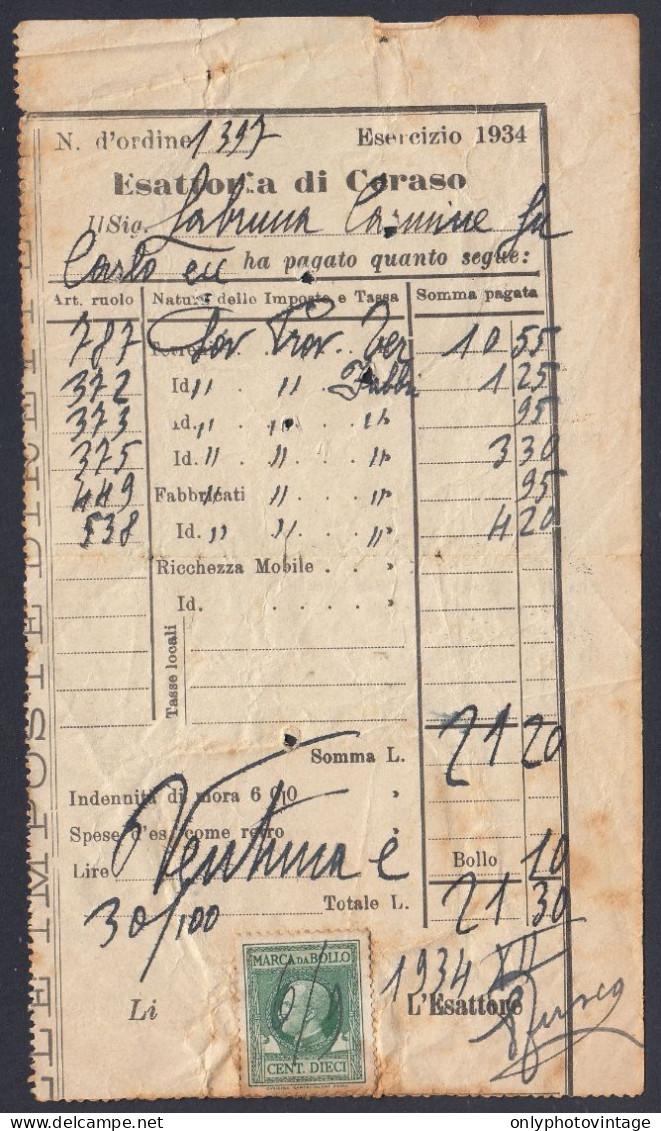 N. d'ordine 1397 Esercizio 1934
Esattoria di Ceraso
Il Sig. Labruna Carmine fu
Carlo ecc ha pagato quanto segue:
Art. ruolo Natura delle Imposte e Tasse Somma pagata
787 Terreni Sov Prov Ter 10 55
372 Id. " " Fabbr 1 25
373 Id. " " " 95
375 Id. " " " 3 30
449 Fabbricati " " " 95
538 Id. " " " 4 20
Ricchezza Mobile . . »
Id. . . . . . »
Tasse locali
Somma L. 21 20
Indennità di mora 6 0|0 »
Spese d'es. come retro »
Lire Ventuna e Bollo 10
30/100 Totale L. 21 30
MARCA DA BOLLO
CENT. DIECI
1934 XII
Li L'Esattore
IMPOSTE DIRETTE
onlyphotovintage